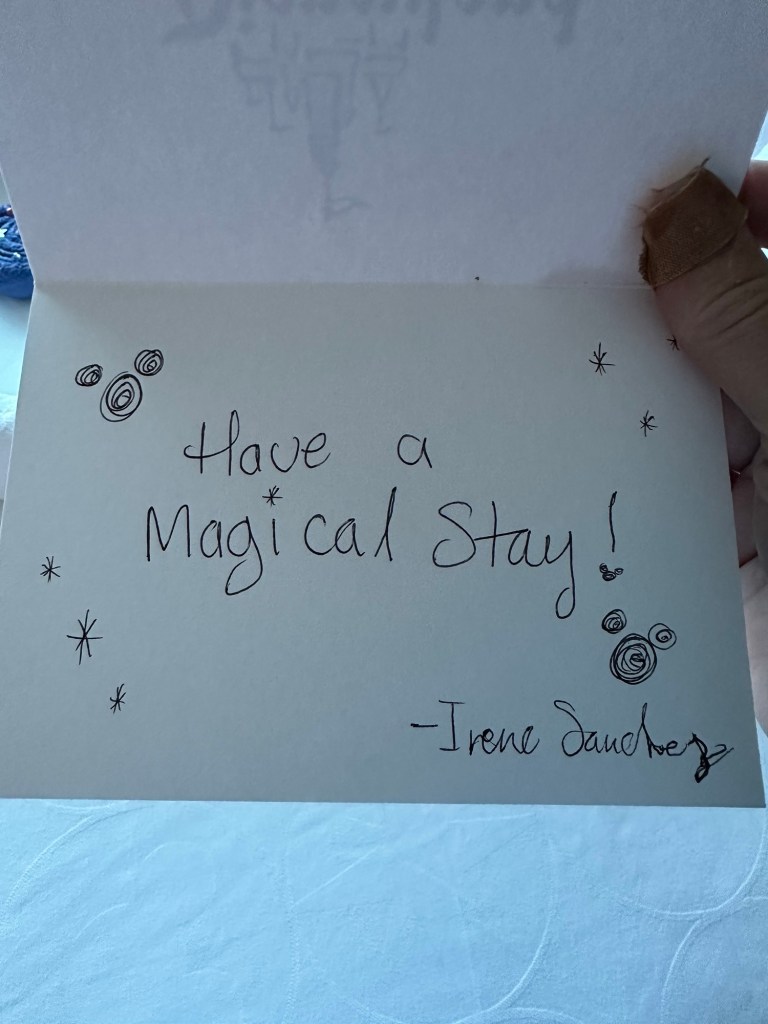 Have a
Magical Stay!
-Irene Sanchez